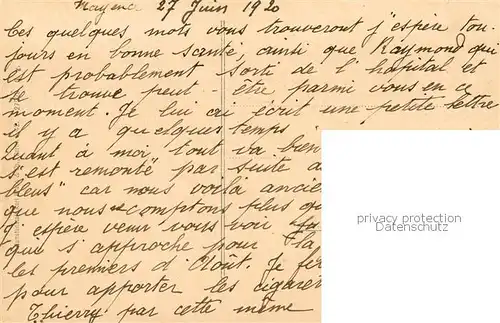 Mayence 27 Juin 1920
Ces quelques mots vous trouveront j'espère tou-
jours en bonne santé ainsi que Raymond qui
est probablement sorti de l'hôpital et
se trouve peut-être parmi vous en ce
moment. Je lui ai écrit une petite lettre
il y a quelques temps
Quant à moi, tout va bien
s'est remonté" par suite
bleus" car nous voilà ancie
que nous ne comptons plus qu
J'espère venir vous voir
qui s'approche pour
les premiers d'Août. Je
pour apporter les cigare
Thierry par cette même
privacy protection
Datenschutz